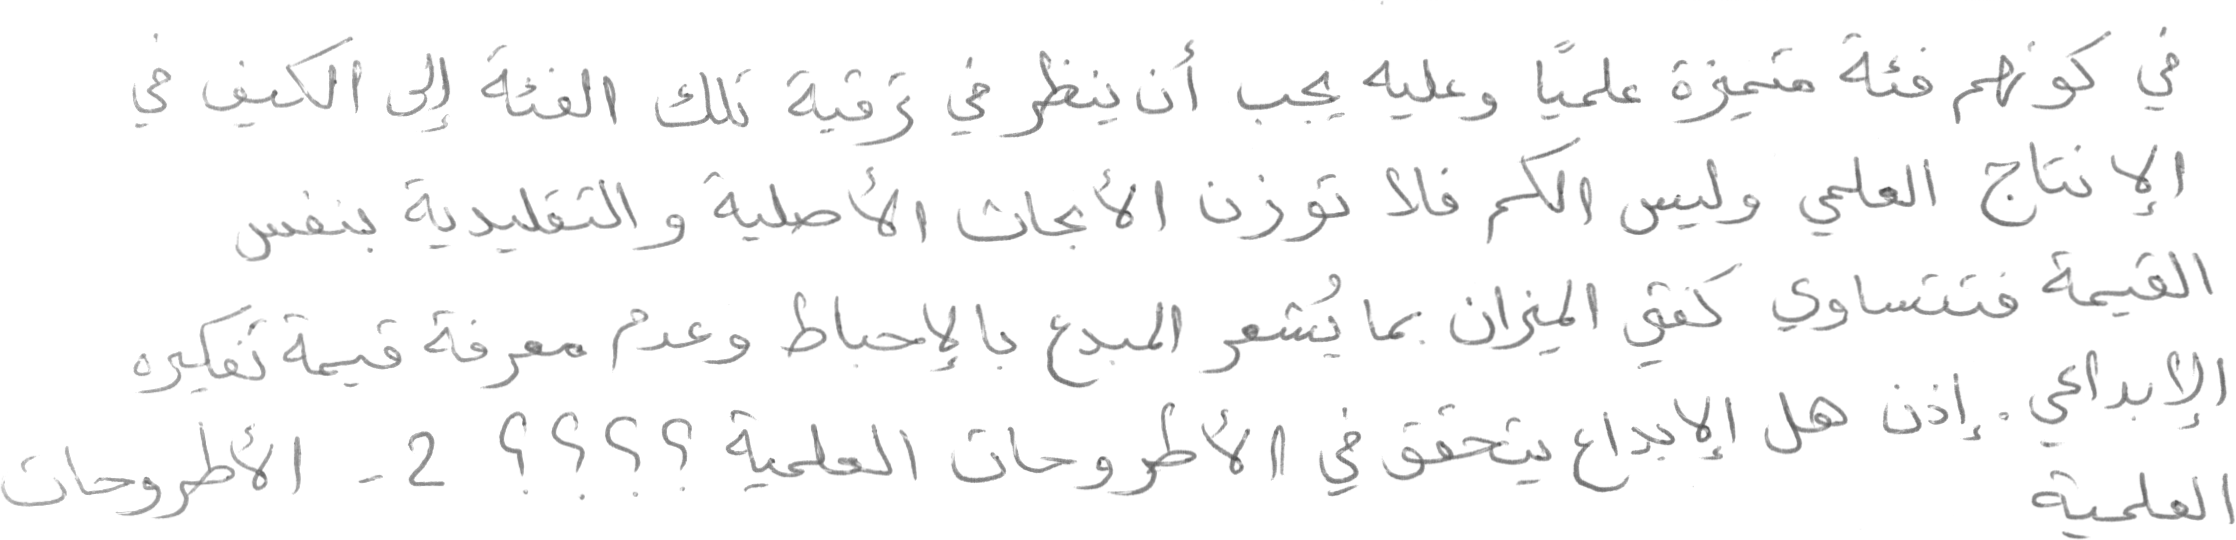 في كونهم فئة متميزة علميًا وعليه يجب أن ينظر في ترقية تلك الفئة إلى الكيف في
الإنتاج العلمي وليس الكم فلا توزن الأبحاث الأصلية والتقليدية بنفس
القيمة فتتساوي كفتي الميزان بما يُشعر المبدع بالإحباط وعدم معرفة قيمة تفكيره
الإبداعي . إذن هل الإبداع يتحقق في الأطروحات العلمية ؟؟؟؟ 2 - الأطروحات
العلمية